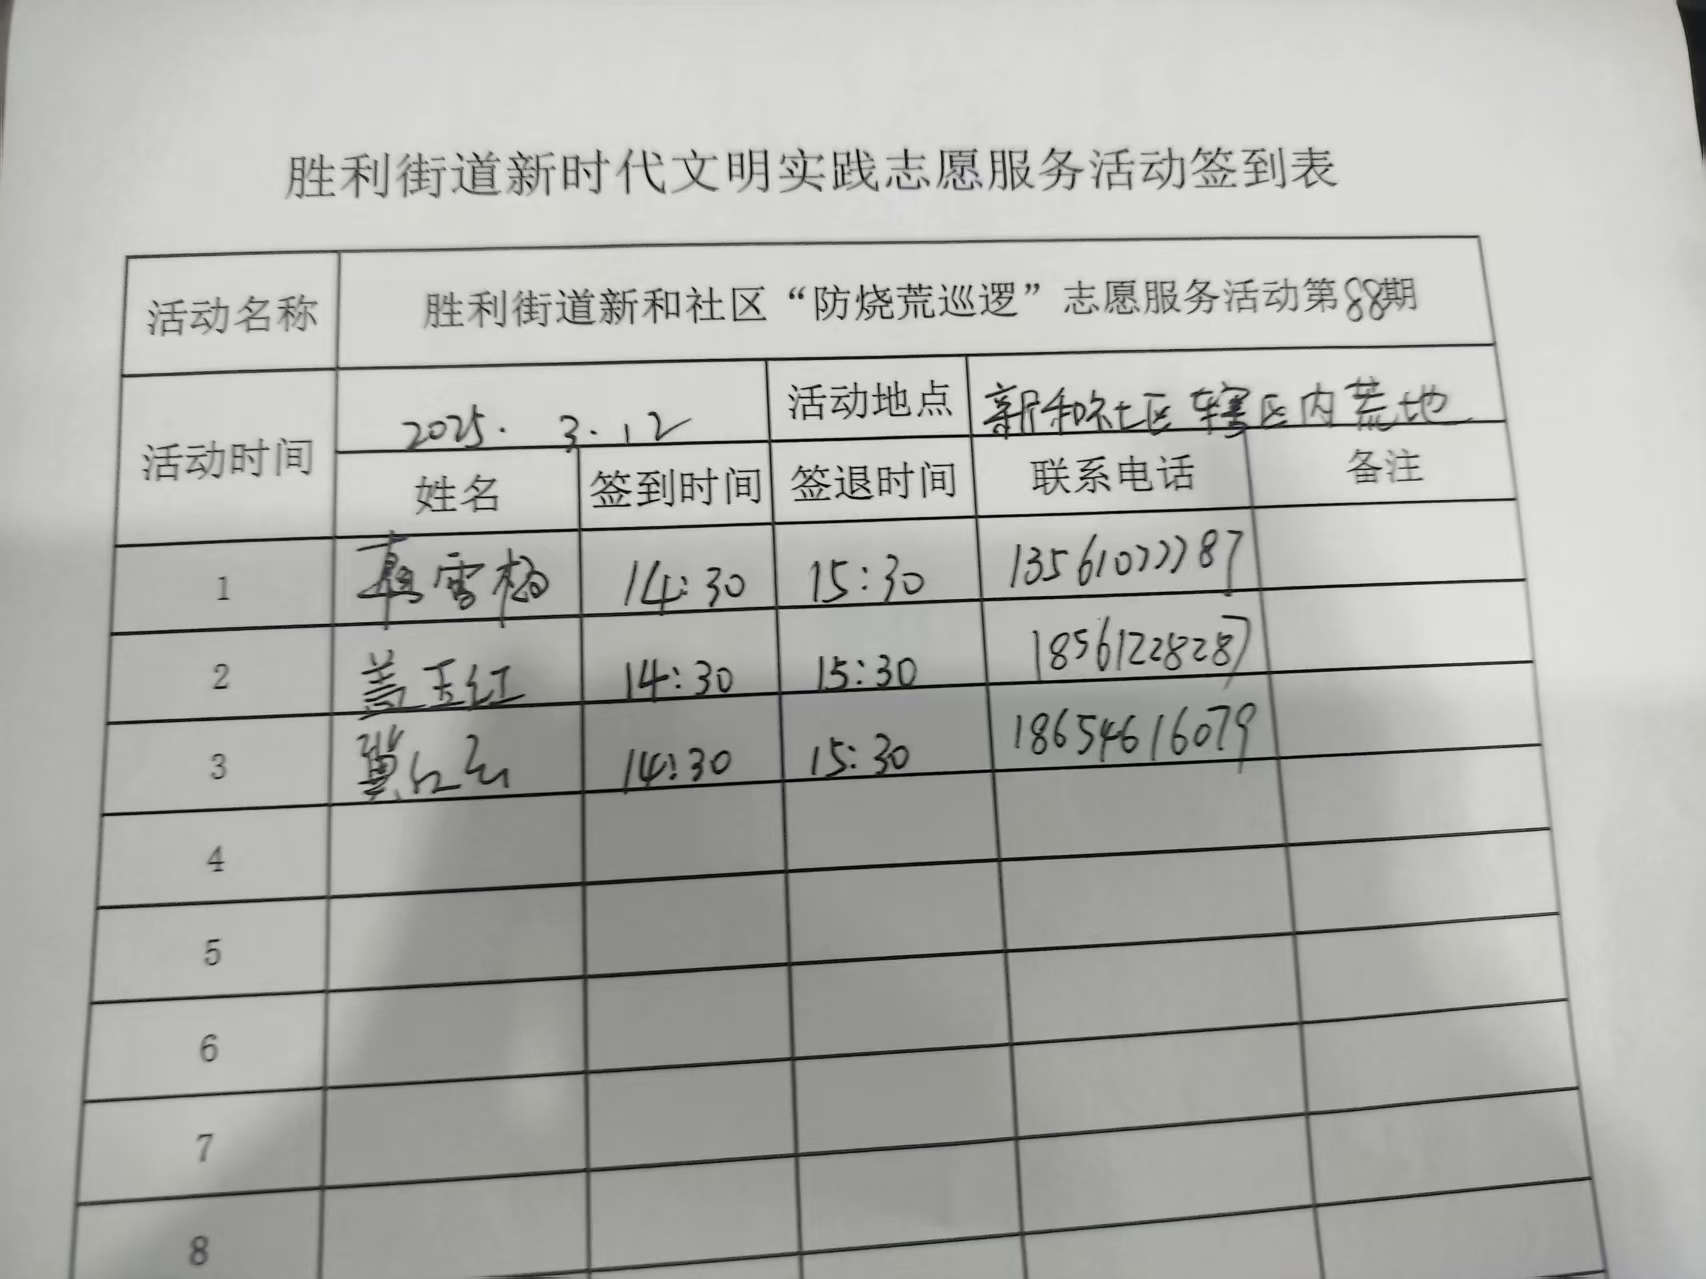 胜利街道新时代文明实践志愿服务活动签到表
活动名称 胜利街道新和社区“防烧荒巡逻”志愿服务活动第88期
活动时间 2025.3.12 活动地点 新和社区辖区内荒地
姓名 签到时间 签退时间 联系电话 备注
1 雪梅 14:30 15:30 13561077787
2 盖玉红 14:30 15:30 18561228287
3 冀红云 14:30 15:30 18654616079
4
5
6
7
8